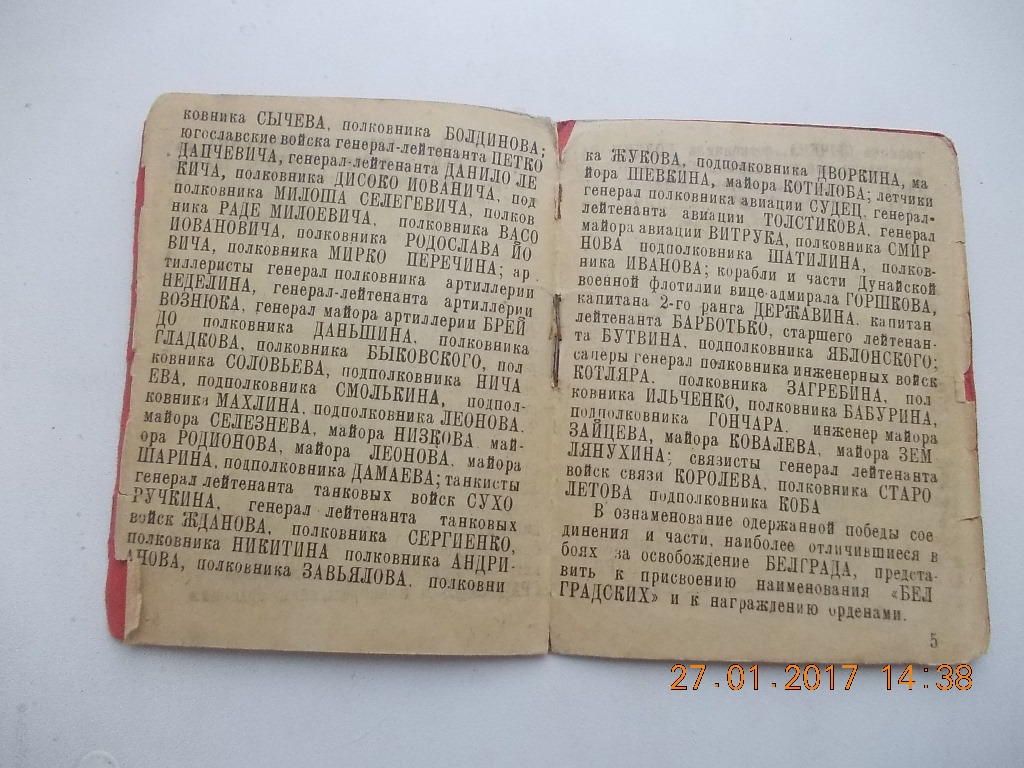 ковника СЫЧЕВА, полковника БОЛДИНОВА;
югославские войска генерал-лейтенанта ПЕТКО
ДАПЧЕВИЧА, генерал-лейтенанта ДАНИЛО ЛЕ
КИЧА, полковника ДИСОКО ИОВАНИЧА, под
полковника МИЛОША СЕЛЕГЕВИЧА, полков
ника РАДЕ МИЛОЕВИЧА, полковника ВАСО
ИОВАНОВИЧА, полковника РОДОСЛАВА ЙО
ВИЧА, полковника МИРКО ПЕРЕЧИНА; ар
тиллеристы генерал полковника артиллерии
НЕДЕЛИНА, генерал-лейтенанта артиллерии
ВОЗНЮКА, генерал майора артиллерии БРЕЙ
ДО полковника ДАНЬШИНА, полковника
ГЛАДКОВА, полковника БЫКОВСКОГО, пол
ковника СОЛОВЬЕВА, подполковника НИЧА
ЕВА, подполковника СМОЛЬКИНА, подпол-
ковника МАХЛИНА, подполковника ЛЕОНОВА.
майора СЕЛЕЗНЕВА, майора НИЗКОВА. май-
ора РОДИОНОВА, майора ЛЕОНОВА. майора
ШАРИНА, подполковника ДАМАЕВА; танкисты
генерал лейтенанта танковых войск СУХО
РУЧКИНА, генерал лейтенанта танковых
войск ЖДАНОВА, полковника СЕРГИЕНКО,
полковника НИКИТИНА полковника АНДРИ-
АЧОВА, полковника ЗАВЬЯЛОВА. полковни
ка ЖУКОВА, подполковника ДВОРКИНА, ма
йора ШЕВКИНА, майора КОТИЛОБА; летчики
генерал полковника авиации СУДЕЦ, генерал-
лейтенанта авиации ТОЛСТИКОВА, генерал
майора авиации ВИТРУКА, полковника СМИР
НОВА подполковника ШАТИЛИНА, полков-
ника ИВАНОВА; корабли и части Дунайской
военной флотилии вице-адмирала ГОРШКОВА,
капитана 2-го ранга ДЕРЖАВИНА. капитан
лейтенанта БАРБОТЬКО, старшего лейтенан-
та БУТВИНА, подполковника ЯБЛОНСКОГО;
саперы генерал полковника инженерных войск
КОТЛЯРА. полковника ЗАГРЕБИНА, пол
ковника ИЛЬЧЕНКО, полковника БАБУРИНА,
подполковника ГОНЧАРА. инженер майора
ЗАЙЦЕВА, майора КОВАЛЕВА, майора ЗЕМ
ЛЯНУХИНА; связисты генерал лейтенанта
войск связи КОРОЛЕВА, полковника СТАРО
ЛЕТОВА подполковника КОБА
В ознаменование одержанной победы сое
динения и части, наиболее отличившиеся в
боях за освобождение БЕЛГРАДА, предста-
вить к присвоению наименования «БЕЛ
ГРАДСКИХ» и к награждению орденами.
5
27.01.2017 14:38